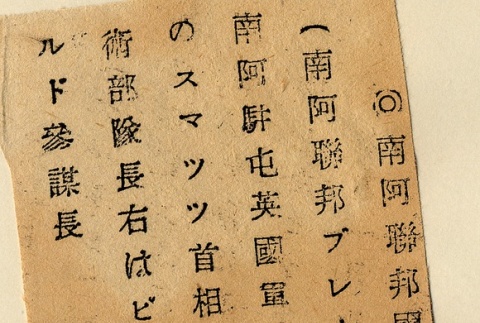 ◎南阿聯邦國
(南阿聯邦ブレ
南阿駐屯英國軍
のスマツツ首相
術部隊長右はビ
ルド參謀長